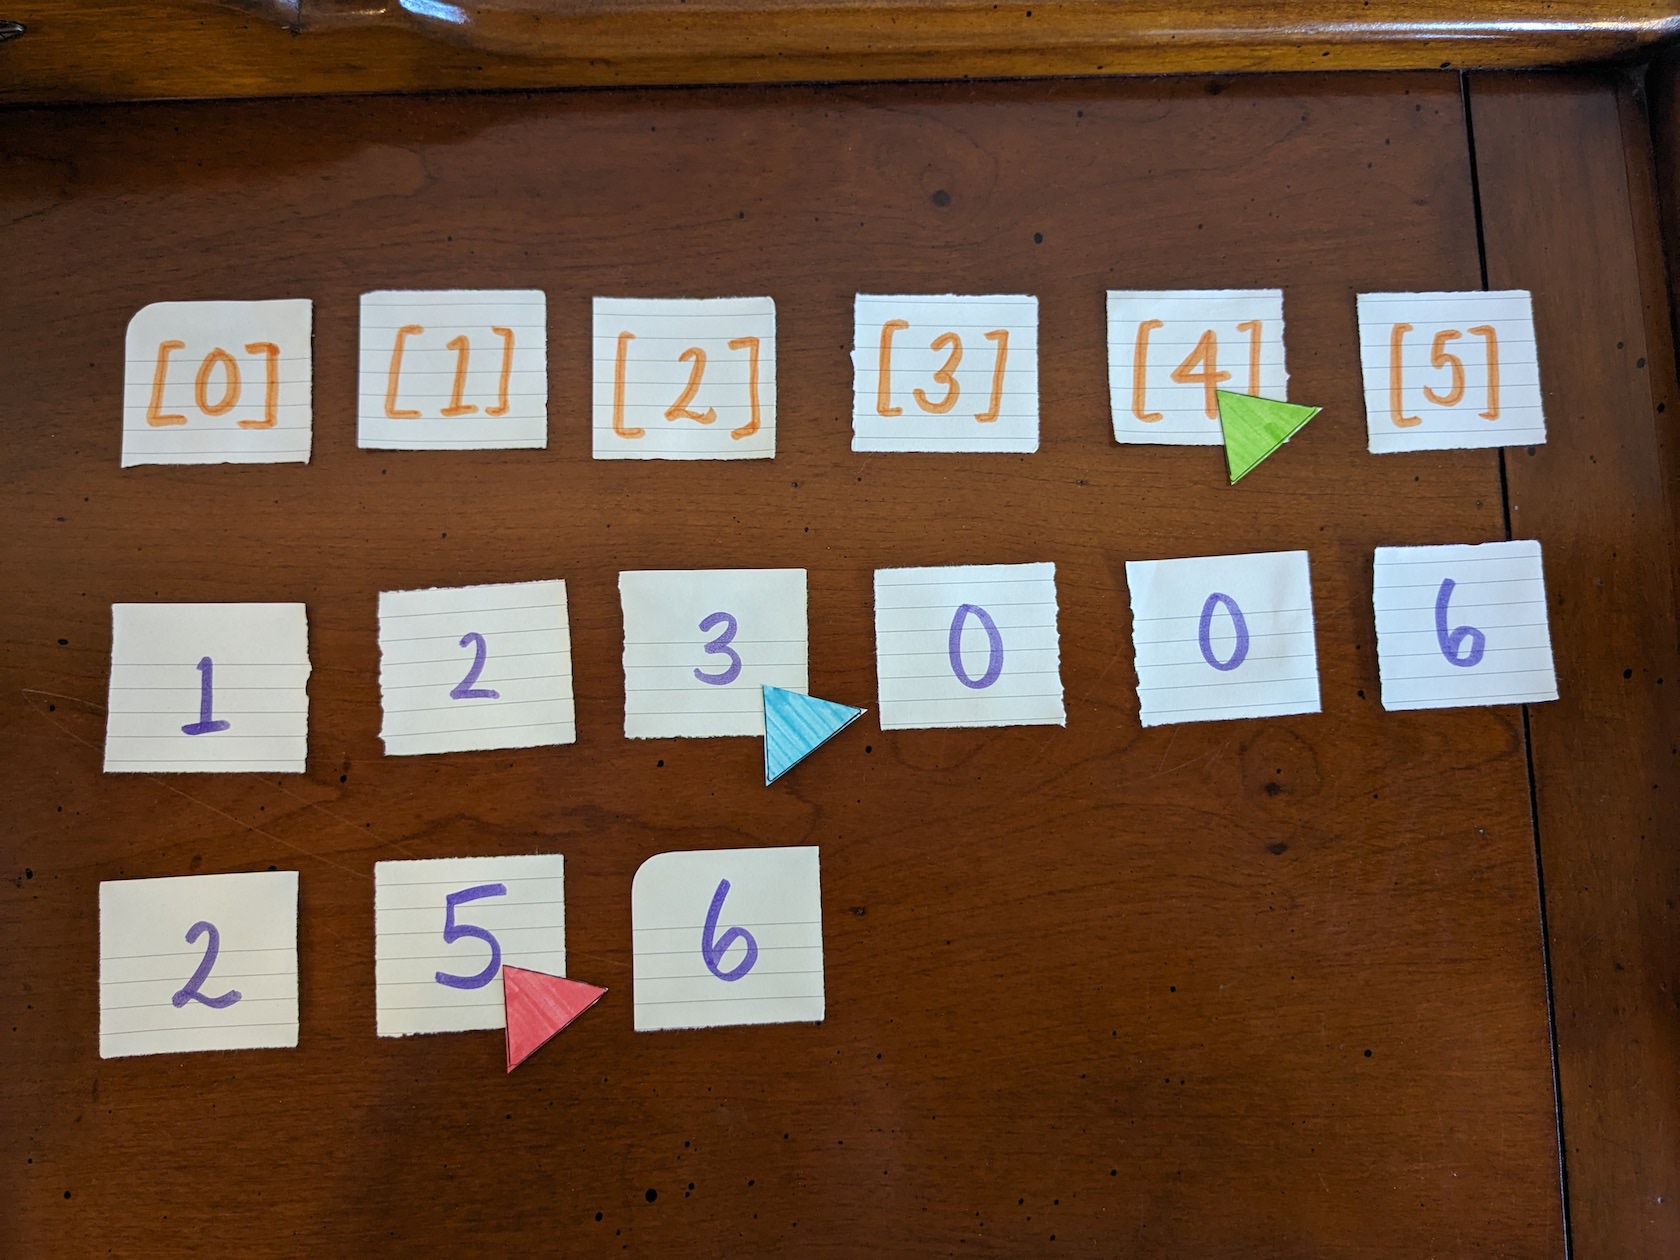 [0] [1] [2] [3] [4] [5]
1 2 3 0 0 6
2 5 6